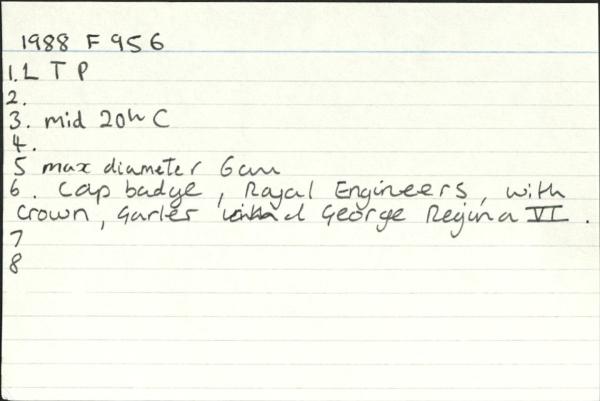 1988 F 956
1. L T P
2.
3. mid 20th C
4.
5 max diameter 6cm
6. Cap badge, Royal Engineers, with
Crown, Garter and George Regina VI.
7
8